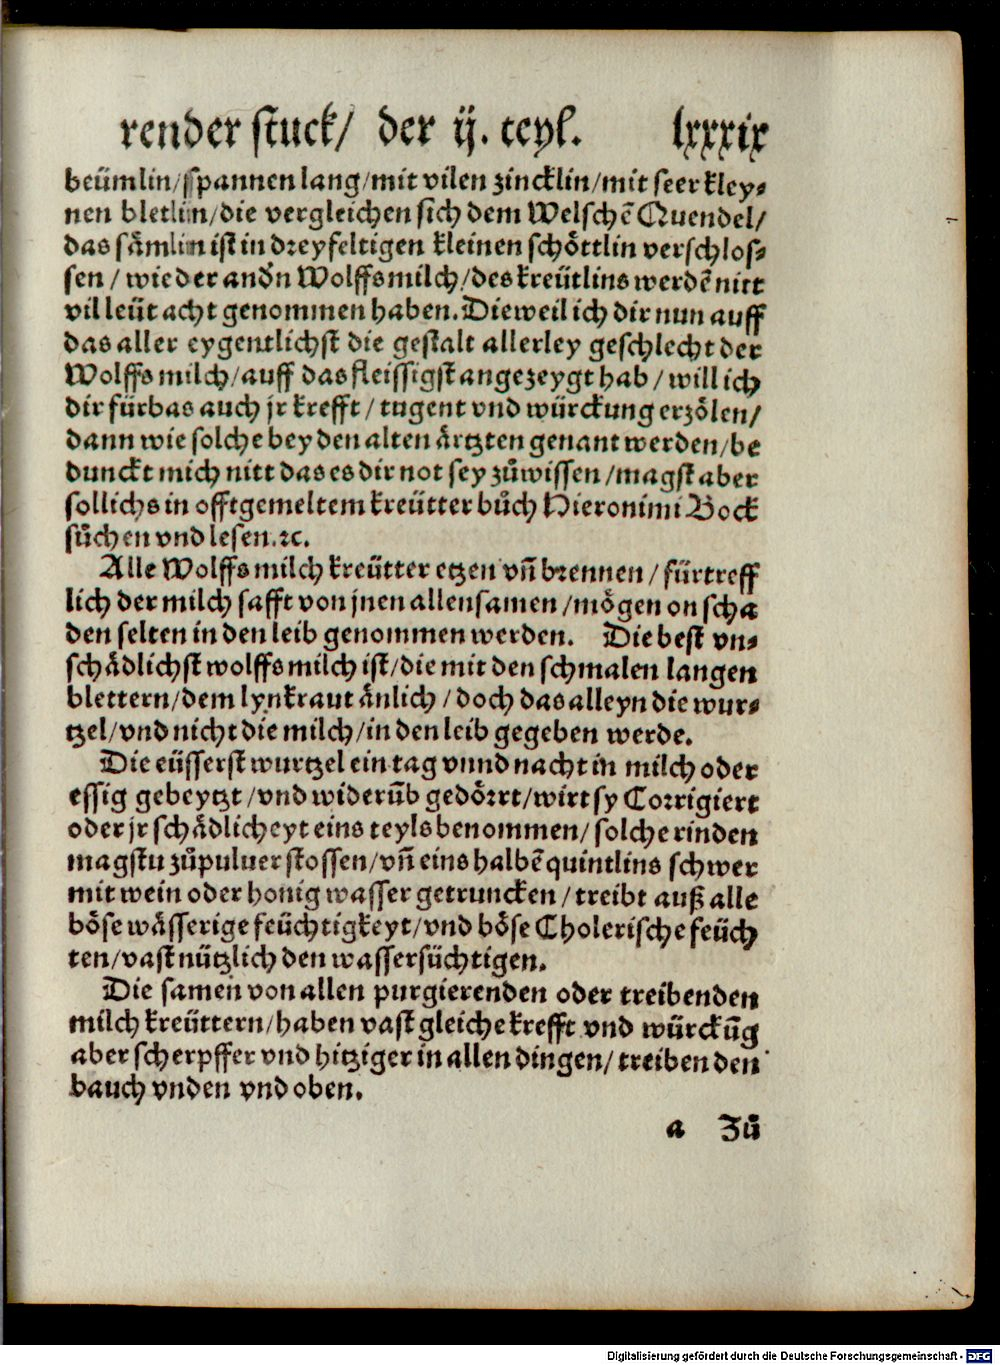 render stuck/ der ij. teyl. lxxxix
beümlin/spannen lang/mit vilen zincklin/mit seer kley⸗
nen bletlin/die vergleichen sich dem Welschẽ Quendel/
das sämlin ist in dreyfeltigen kleinen schöttlin verschlos⸗
sen / wie der andn̄ Wolffsmilch/des kreütlins werdẽ nitt
vil leüt acht genommen haben. Dieweil ich dir nun auff
das aller eygentlichst die gestalt allerley geschlecht der
Wolffs milch/auff das fleissigst angezeygt hab / will ich
dir fürbas auch jr krefft / tugent vnd würckung erzölen/
dann wie solche bey den alten ärtzten genant werden/be
dunckt mich nitt das es dir not sey zůwissen /magst aber
sollichs in offtgemeltem kreütter bůch Hieronimi Bock
sůchen vnd lesen.⁊c.
Alle Wolffs milch kreütter etzen vñ brennen / fürtreff
lich der milch safft von jnen allensamen /mögen on scha
den selten in den leib genommen werden. Die best vn⸗
schädlichst wolffs milch ist/die mit den schmalen langen
blettern/dem lynkraut änlich / doch das alleyn die wur⸗
tzel/vnd nicht die milch/in den leib gegeben werde.
Die eüsserst wurtzel ein tag vnnd nacht in milch oder
essig gebeytzt /vnd widerũb gedörrt/wirt sy Corrigiert
oder jr schädlicheyt eins teyls benommen/ solche rinden
magstu zůpuluer stossen/vñ eins halbẽ quintlins schwer
mit wein oder honig wasser getruncken / treibt auß alle
böse wässerige feüchtigkeyt/vnd böse Cholerische feüch
ten/vast nützlich den wassersüchtigen.
Die samen von allen purgierenden oder treibenden
milch kreüttern/haben vast gleiche krefft vnd würckũg
aber scherpffer vnd hitziger in allen dingen/ treiben den
bauch vnden vnd oben.
a Zů
Digitalisierung gefördert durch die Deutsche Forschungsgemeinschaft - DFG